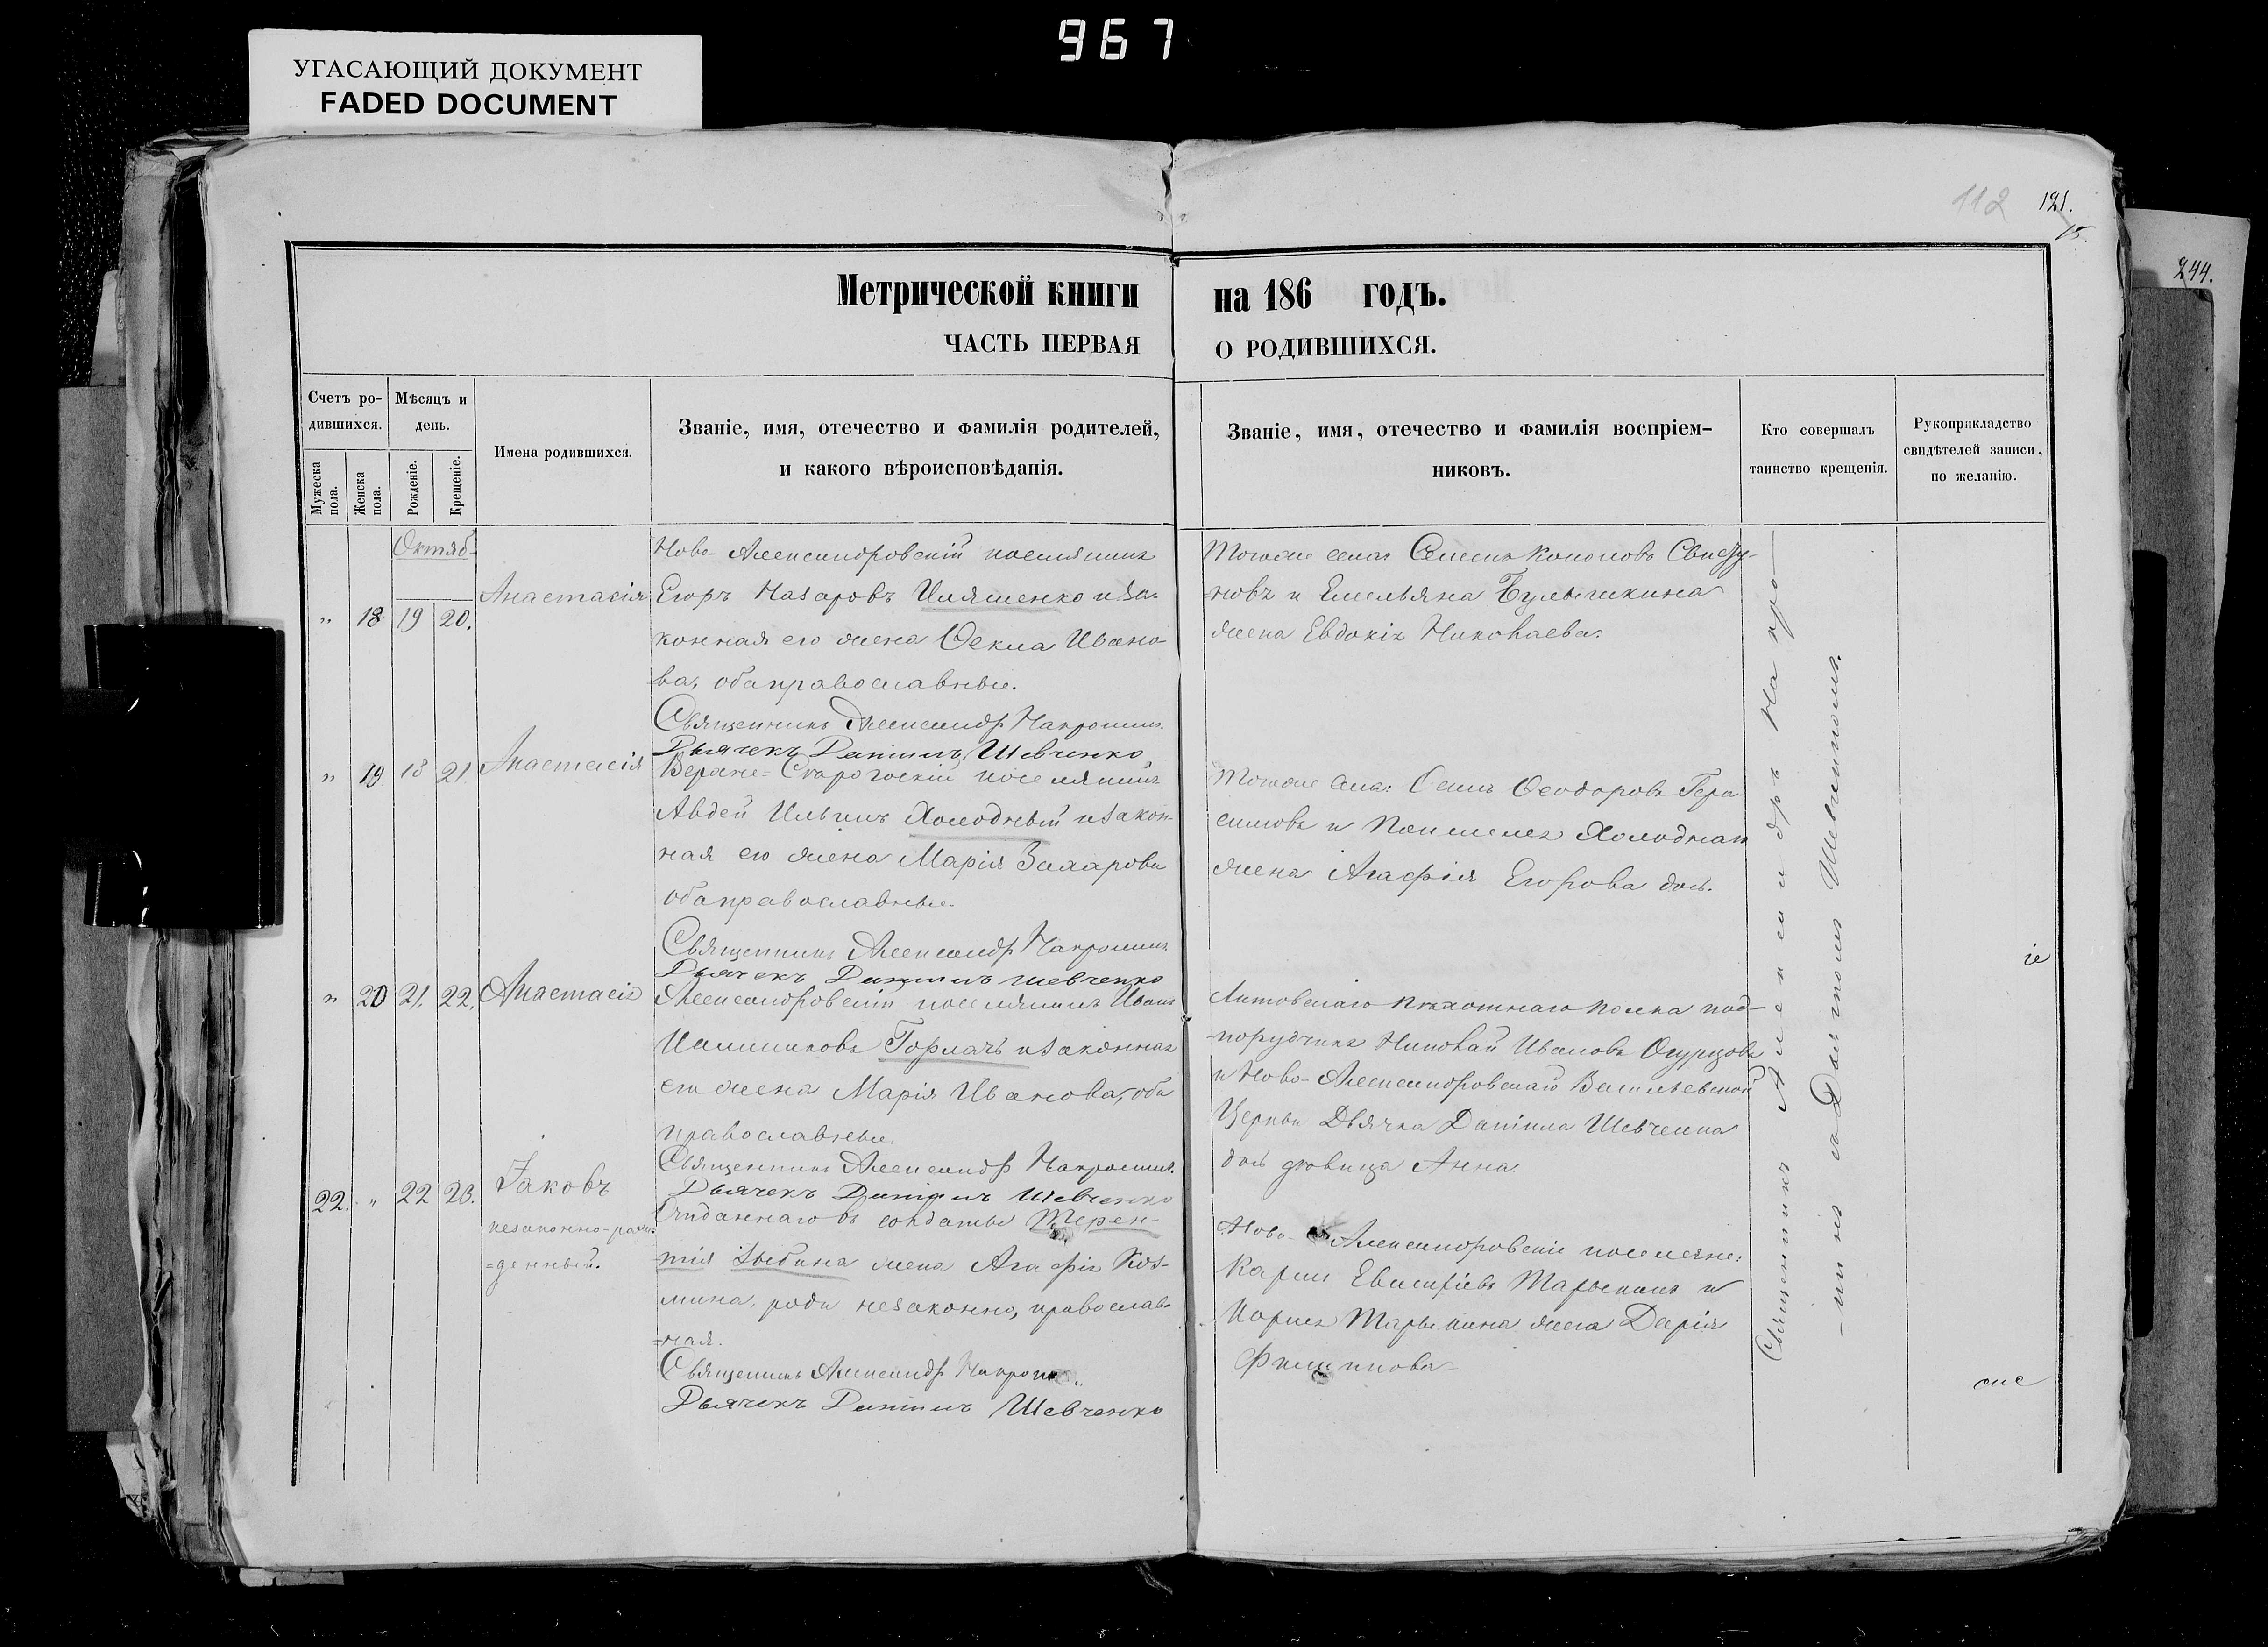 967
УГАСАЮЩИЙ ДОКУМЕНТ
FADED DOCUMENT
112 121.
15.
244.
Метрической книги на 186 годъ.
ЧАСТЬ ПЕРВАЯ О РОДИВШИХСЯ.
Счетъ ро-
дившихся.
Мужеска
пола.
Женска
пола.
Мѣсяцъ и
день.
Рожденіе.
Крещеніе.
Имена родившихся.
Званіе, имя, отечество и фамилія родителей,
и какого вѣроисповѣданія.
Званіе, имя, отечество и фамилія воспріем-
никовъ.
Кто совершалъ
таинство крещенія.
Рукоприкладство
свидѣтелей записи,
по желанію.
Октяб-
" 18 19 20.
Анастасія
Ново-Александровскій поселянинъ
Егоръ Назаровъ Иляшенко и за-
конная его жена Ѳекла Ивано-
ва, оба православные.
Священникъ Александръ
Дьячекъ Даніилъ Шевченко
Тогоже села Семенъ Кононовъ
-новъ и Емельяна Булыжкина
жена Евдокія Николаева.
" 19 18 21
Анастасія
поселянинъ
Авдей Ильинъ Холодный и закон-
ная его жена Марія Захарова
оба православные.
Священникъ Александръ
Дьячекъ Даніилъ Шевченко
Тогоже села Ѳеодоровъ Гера-
симовъ и Холодная
жена Агафія Егорова дочь.
" 20 21. 22.
Анастасія
Александровскій поселянинъ Иванъ
Горлачъ и законная
его жена Марія Иванова, оба
православные.
Священникъ Александръ
Дьячекъ Даніилъ Шевченко
Литовскаго пѣхотнаго полка под-
-порудчикъ Николай Ивановъ Огурцовъ
и Ново-Александровской Васильевской
Церкви Дьячка Даніила Шевченка
дочь дѣвица Анна.
22. " 22 23.
Іаковъ
незаконно-рож-
=денный.
Отданнаго въ солдаты Терен-
-тія Зыбина жена Агафія Коз-
мина, роди незаконно, православ-
=ная.
Священникъ Александръ
Дьячекъ Даніилъ Шевченко
Ново-Александровскіе поселяне:
Карпъ Марыкинъ и
Марыкина жена Дарія
Филиппова
Священникъ Александръ
съ Дьячкомъ Шевченкомъ.
іе